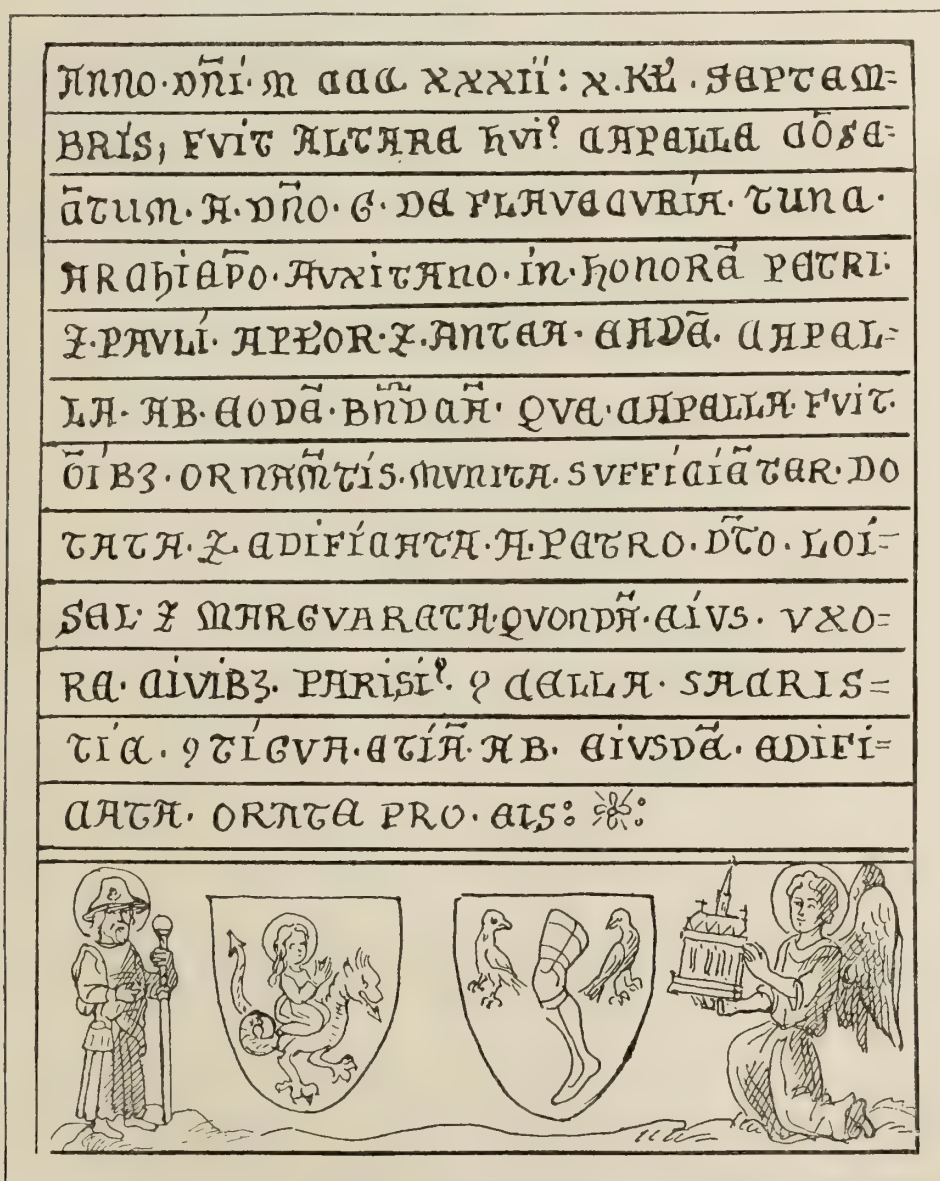 ANNO · DÑI · M CCC XXXII : X . KŁ . SEPTEM=
BRIS, FVIT ALTARE hVIꝰ CAPELLE CÕSE=
C̃TUM · A · DÑO · G · DE FLAVECVRIA · TUNC ·
ARChIEP̃O · AVXITANO · IN · HONORẼ PETRI ·
⁊ · PAVLI · APŁOR · ⁊ · ANTEA · EADẼ · CAPEL=
LA · AB · EODẼ · BÑDCÃ · QVE · CAPELLA · FVIT ·
ÕIBꝫ · ORNAM̃TIS · MVNITA · SVFFICIẼTER · DO
TATA · ⁊ · EDIFICATA · A · PETRO · DC̃TO · LOI=
SEL · ⁊ MARGVARETA · QVONDÃ · EIVS · VXO=
RE · CIVIBꝫ · PARISIꝰ · ꝯ CELLA · SACRIS=
TIE · ꝯTIGVA · ETIÃ · AB · EIVSDẼ · EDIFI=
CATA · ORATE PRO · EIS :